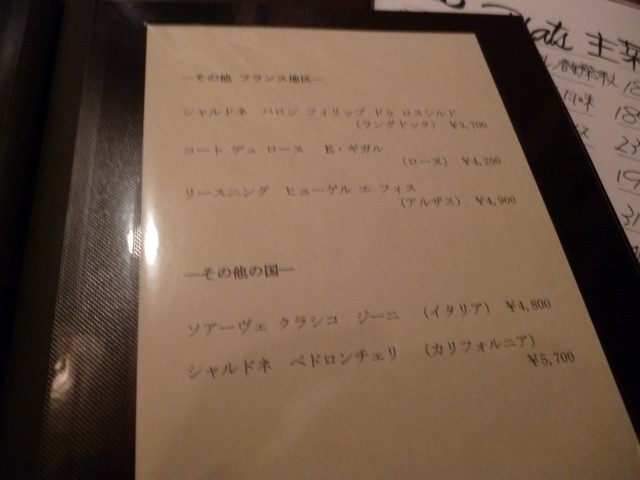 ―その他 フランス地区―
シャルドネ バロン フィリップ ドゥ ロスシルド
(ラングドック) ¥3,700
コート デュ ローヌ E・ギガル
(ローヌ) ¥4,200
リースニング ヒューゲル エ フィス
(アルザス) ¥4,900
―その他の国―
ソアーヴェ クラシコ ジーニ (イタリア) ¥4,800
シャルドネ ペドロンチェリ (カリフォルニア)
¥5,700
主菜
18
18
23
19
31